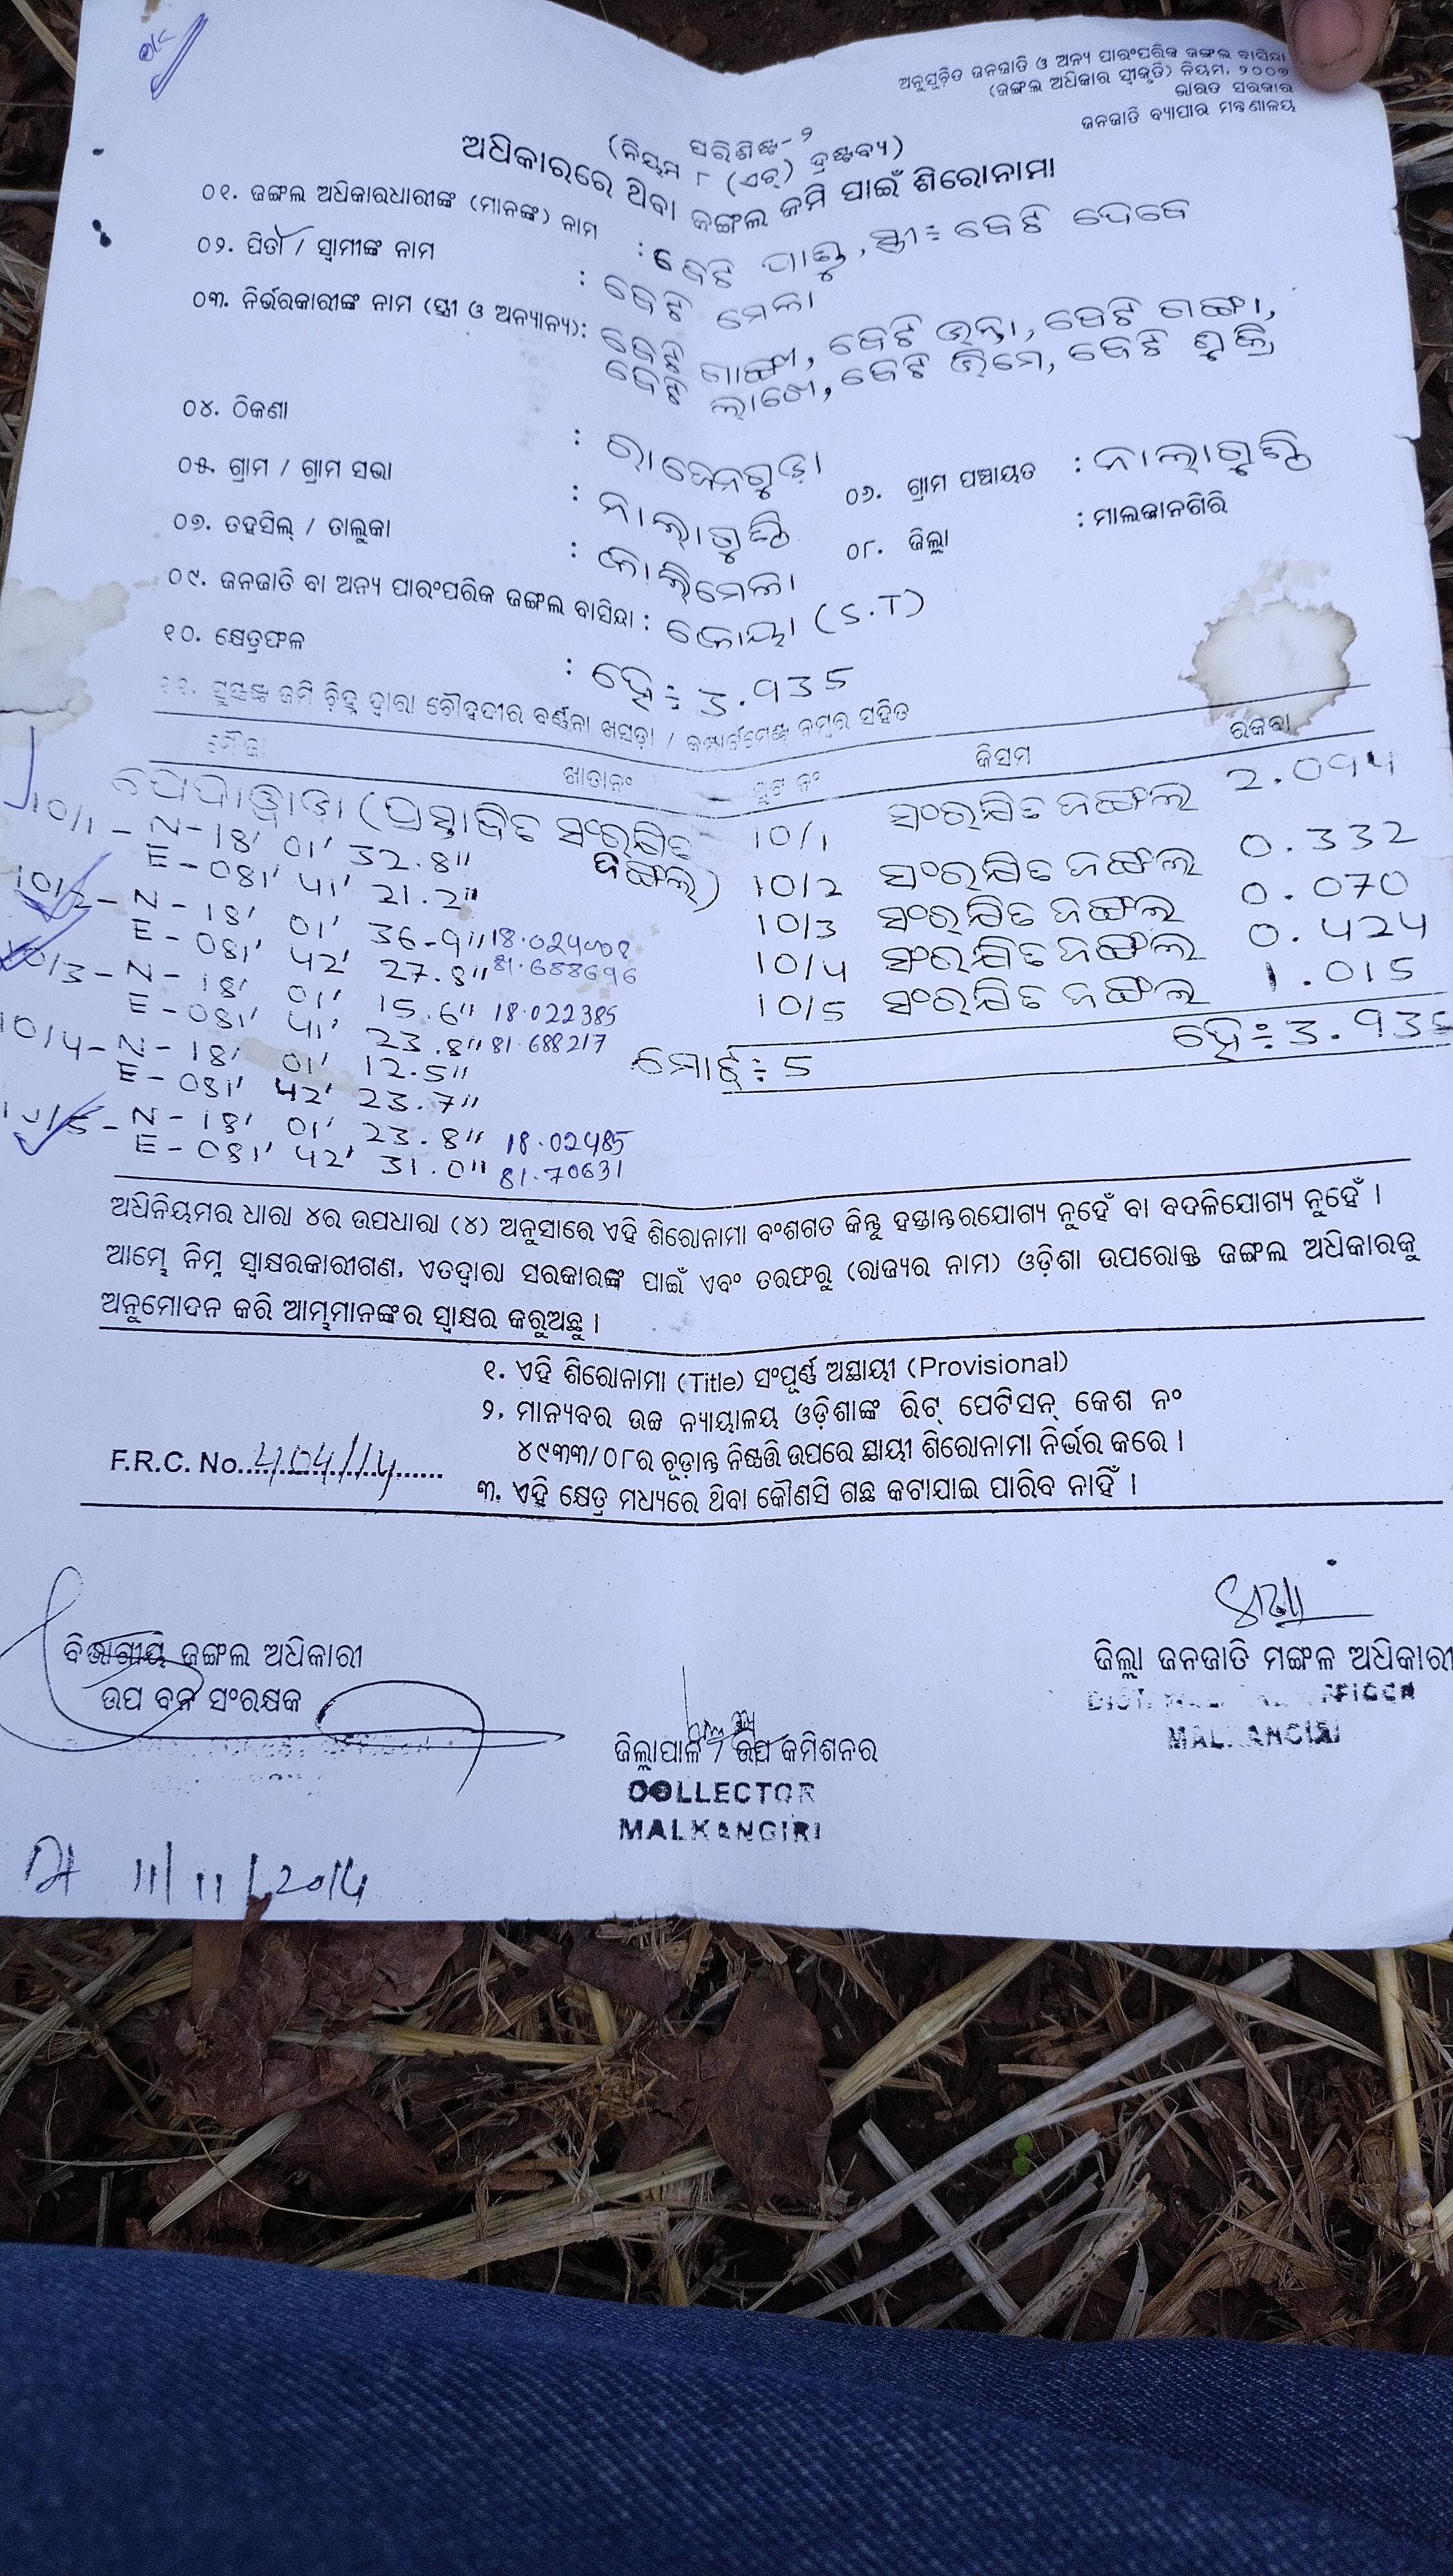 ଅନୁସୂଚିତ ଜନଜାତି ଓ ଅନ୍ୟ ପାରଂପରିକ ଜଙ୍ଗଲ ବାସିନ୍ଦା
(ଜଙ୍ଗଲ ଅଧିକାର ସ୍ୱୀକୃତି) ନିୟମ, ୨୦୦୭
ଭାରତ ସରକାର
ଜନଜାତି ବ୍ୟାପାର ମନ୍ତ୍ରଣାଳୟ
ପରିଶିଷ୍ଟ-୨
(ନିୟମ ୮ (ଏଚ୍) ଦ୍ରଷ୍ଟବ୍ୟ)
ଅଧିକାରରେ ଥିବା ଜଙ୍ଗଲ ଜମି ପାଇଁ ଶିରୋନାମା
୦୧. ଜଙ୍ଗଲ ଅଧିକାରଧାରୀଙ୍କ (ମାନଙ୍କ) ନାମ : ବେଟି ସ୍ତ୍ରୀ÷ ବେଟି ଦେବେ
୦୨. ପିତା / ସ୍ୱାମୀଙ୍କ ନାମ : ବେଟି ମେଳା
୦୩. ନିର୍ଭରକାରୀଙ୍କ ନାମ (ସ୍ତ୍ରୀ ଓ ଅନ୍ୟାନ୍ୟ): ବେଟି ବେଟି ବେଟି ଗଙ୍ଗା,
ବେଟି ବେଟି ବେଟି
୦୪. ଠିକଣା :
୦୫. ଗ୍ରାମ / ଗ୍ରାମ ସଭା : ନାଲାଗୁଣ୍ଠି ୦୬. ଗ୍ରାମ ପଞ୍ଚାୟତ : ନାଲାଗୁଣ୍ଠି
୦୭. ତହସିଲ୍ / ତାଲୁକା : କାଲିମେଳା ୦୮. ଜିଲ୍ଲା : ମାଲକାନଗିରି
୦୯. ଜନଜାତି ବା ଅନ୍ୟ ପାରଂପରିକ ଜଙ୍ଗଲ ବାସିନ୍ଦା : କୋୟା (S.T)
୧୦. କ୍ଷେତ୍ରଫଳ : ହେ÷ 3.935
୧୧. ସୁସ୍ପଷ୍ଟ ଜମି ଚିହ୍ନ ଦ୍ୱାରା ଚୌହଦୀର ବର୍ଣ୍ଣନା ଖସଡ଼ା / କମ୍ପାର୍ଟମେଣ୍ଟ ନମ୍ବର ସହିତ
ମୌଜା ଖାତାନଂ ପ୍ଲଟ ନଂ କିସମ ରକବା
(ପ୍ରସ୍ତାବିତ ସଂରକ୍ଷିତ ଜଙ୍ଗଲ) 10/1 ସଂରକ୍ଷିତ ଜଙ୍ଗଲ 2.094
10/1 - N - 18' 01' 32.8"
E - 081' 41' 21.2" 10/2 ସଂରକ୍ଷିତ ଜଙ୍ଗଲ 0.332
10/2 - N - 18' 01' 36-9" 10/3 ସଂରକ୍ଷିତ ଜଙ୍ଗଲ 0.070
E - 081' 42' 27.8" 81.688696 10/4 ସଂରକ୍ଷିତ ଜଙ୍ଗଲ 0.424
10/3 - N - 18' 01' 15.6" 18.022385 10/5 ସଂରକ୍ଷିତ ଜଙ୍ଗଲ 1.015
E - 081' 41' 23.8" 81.688217 ମୋଟ୍÷ 5 ହେ÷ 3.935
10/4 - N - 18' 01' 12.5"
E - 081' 42' 23.7"
10/5 - N - 18' 01' 23.8" 18.02485
E - 081' 42' 31.0" 81.70631
ଅଧିନିୟମର ଧାରା ୪ର ଉପଧାରା (୪) ଅନୁସାରେ ଏହି ଶିରୋନାମା ବଂଶଗତ କିନ୍ତୁ ହସ୍ତାନ୍ତରଯୋଗ୍ୟ ନୁହେଁ ବା ବଦଳିଯୋଗ୍ୟ ନୁହେଁ ।
ଆମ୍ଭେ ନିମ୍ନ ସ୍ୱାକ୍ଷରକାରୀଗଣ, ଏତଦ୍ୱାରା ସରକାରଙ୍କ ପାଇଁ ଏବଂ ତରଫରୁ (ରାଜ୍ୟର ନାମ) ଓଡ଼ିଶା ଉପରୋକ୍ତ ଜଙ୍ଗଲ ଅଧିକାରକୁ
ଅନୁମୋଦନ କରି ଆମ୍ଭମାନଙ୍କର ସ୍ୱାକ୍ଷର କରୁଅଛୁ ।
୧. ଏହି ଶିରୋନାମା (Title) ସଂପୂର୍ଣ୍ଣ ଅସ୍ଥାୟୀ (Provisional)
୨. ମାନ୍ୟବର ଉଚ୍ଚ ନ୍ୟାୟାଳୟ ଓଡ଼ିଶାଙ୍କ ରିଟ୍ ପେଟିସନ୍ କେଶ ନଂ
୪୯୩୩/୦୮ର ଚୂଡ଼ାନ୍ତ ନିଷ୍ପତ୍ତି ଉପରେ ସ୍ଥାୟୀ ଶିରୋନାମା ନିର୍ଭର କରେ ।
F.R.C. No. 404/14
୩. ଏହି କ୍ଷେତ୍ର ମଧ୍ୟରେ ଥିବା କୌଣସି ଗଛ କଟାଯାଇ ପାରିବ ନାହିଁ ।
ବିଭାଗୀୟ ଜଙ୍ଗଲ ଅଧିକାରୀ
ଉପ ବନ ସଂରକ୍ଷକ
ଜିଲ୍ଲା ଜନଜାତି ମଙ୍ଗଳ ଅଧିକାରୀ
MALKANGIRI
ଜିଲ୍ଲାପାଳ / ଉପ କମିଶନର
COLLECTOR
MALKANGIRI
11/11/2014